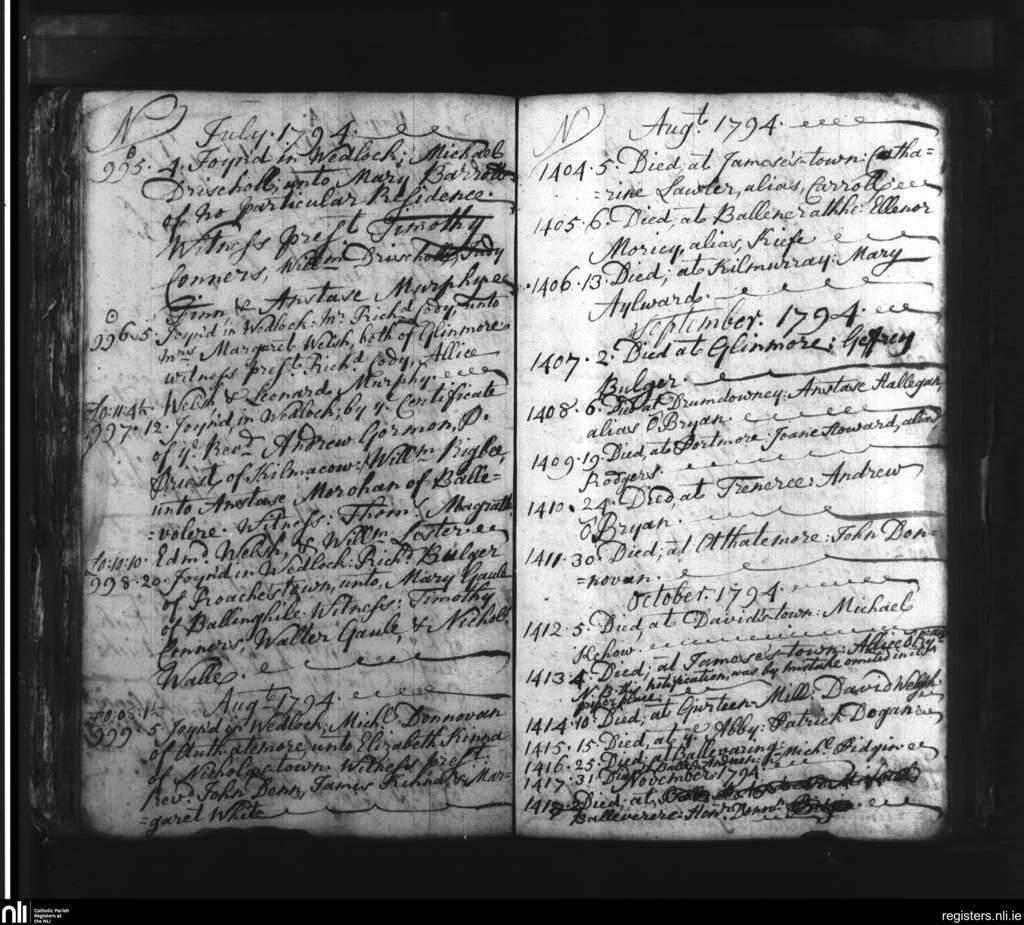 N
July. 1794.
995. 4. Joyn'd in Wedlock; Michael
Drischoll; unto Mary Barrott
of no particular Residence.
Witness pres.t Timothy
Conners, Will.m Drischoll, Judy
Finn & Anstase Murphy
996. 5. Joyn'd in Wedlock: Mr. Rich.d Cody, unto
Mrs Margaret Welsh, both of Glinmore
witness pres.t Rich.d Cody, Allice
Welsh & Leonard Murphy.
997. 12. Joyn'd, in Wedlock; by y.e Certificate
of y.e Rev.d Andrew Gormon, P.
Priest, of Kilmacow: Will.m Rigbee,
unto Anstase Morohan of Balle=
=volere. Witness: Thom.s Magrath
£0:10:10. Edm.d Welsh, & Will.m Loster.
998. 20. Joyn'd in Wedlock: Rich.d Bulger
of Roachestown, unto, Mary Gaule
of Ballinghile. Witness: Timothy
Conners, Walter Gaule, & Nichol.s
Walle.
Aug.t 1794.
999. 5. Joyn'd in Wedlock, Mich.l Donnovan
of Auth-atemore, unto Elizabeth Kinna
of Nicholastown. Witness pres.t
Rev.d John Denn, James Kinna, & Mar=
=garet White
N
Aug.t 1794.
1404. 5. Died, at Jameses-town: Catha=
=rine Lawler, alias, Carroll
1405. 6. Died, at Ballenerathhe: Ellenor
Moricy, alias, Kiefe
1406. 13. Died; at Kilmurray: Mary
Aylward.
September. 1794.
1407. 2. Died at Glinmore; Geffrey
Bulger.
1408. 6. Died at Drumdowney: Anstase Hallegan,
alias O'Bryan.
1409. 19. Died, at Portmore: Joane Howard, alias
Rodgers.
1410. 24. Died, at Treneree: Andrew
O'Bryan.
1411. 30. Died; at Athatemore: John Don=
=novan.
October. 1794.
1412. 5. Died, at David's-town: Michael
Kehow.
1413. 4. Died; at Jameses-town: Allice
N.B. this notification, was by mistake omited in its
proper place.
1414. 10. Died, at Gurteen-Mill: David Welsh
1415. 15. Died, at y.e Abby: Patrick Dogan
1416. 25. Died, at Ballevaring:
1417. 31. Died, Mich.l Pidgin.
November 1794.
1418. 2. Died; at
Balleverere: Hon.r Donov.n
nli
Catholic Parish
Registers at
the NLI
registers.nli.ie